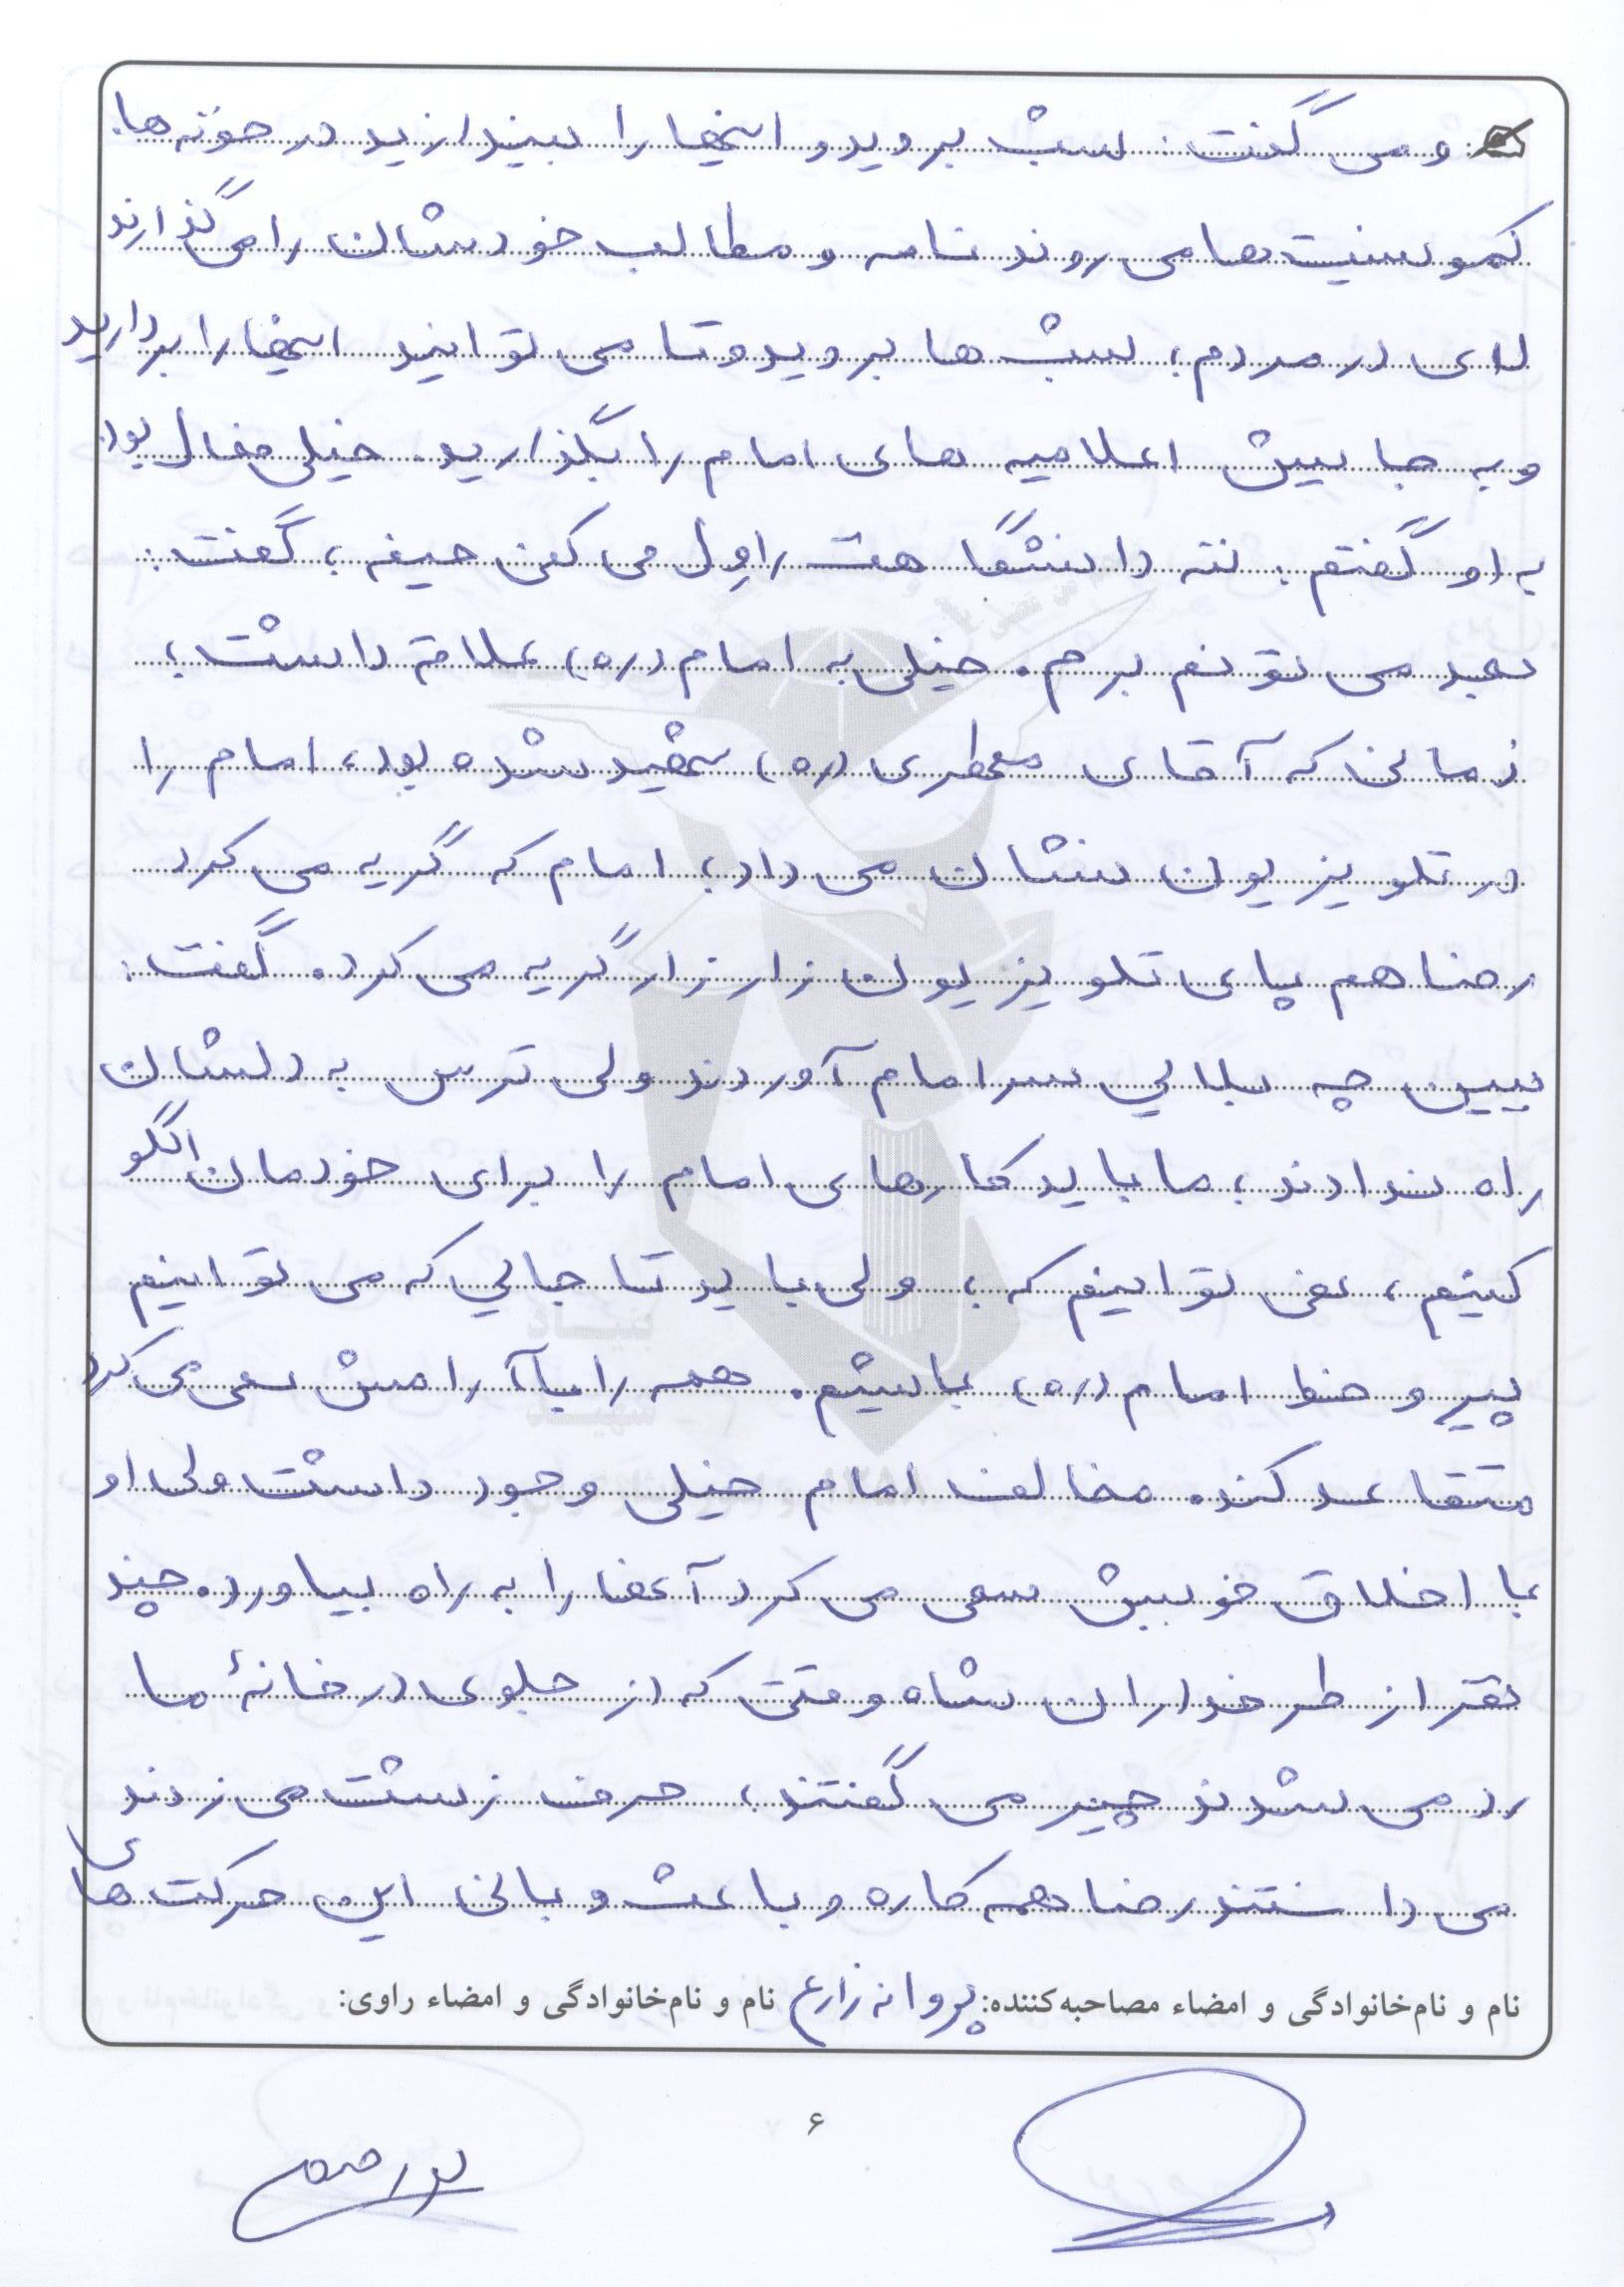 و می گفت: شب بروید و اینها را بیندازید در خونه ها.
کمونیست ها می روند نامه و مطالب خودشان را می گذارند
لای در مردم؛ شب ها بروید و تا می توانید اینها را بردارید
و به جایش اعلامیه های امام را بگذارید. خیلی فعال بود.
به او گفتم: ننه دانشگاهت را ول می کنی حیفه؛ گفت:
بعد می تونم برم. خیلی به امام (ره) علاقه داشت؛
زمانی که آقای مطهری (ره) شهید شده بود، امام را
در تلویزیون نشان می داد؛ امام که گریه می کرد
رضا هم پای تلویزیون زار زار گریه می کرد. گفت:
ببین چه بلایی سر امام آوردند ولی ترس به دلشان
راه ندادند؛ ما باید کارهای امام را برای خودمان الگو
کنیم، نمی توانیم که؛ ولی باید تا جایی که می توانیم
پیرو خط امام (ره) باشیم. همه را با آرامش سعی می کرد
متقاعد کند. مخالف امام خیلی وجود داشت ولی او
با اخلاق خوبش سعی می کرد آنها را به راه بیاورد. چند
نفر از طرفداران شاه وقتی که از جلوی در خانهٔ ما
رد می شدند چیز می گفتند؛ حرف زشت می زدند
می دانستند رضا همه کاره و باعث و بانی این حرکت های
نام و نام‌خانوادگی و امضاء مصاحبه‌کننده: پروانه زارع نام و نام‌خانوادگی و امضاء راوی:
۶